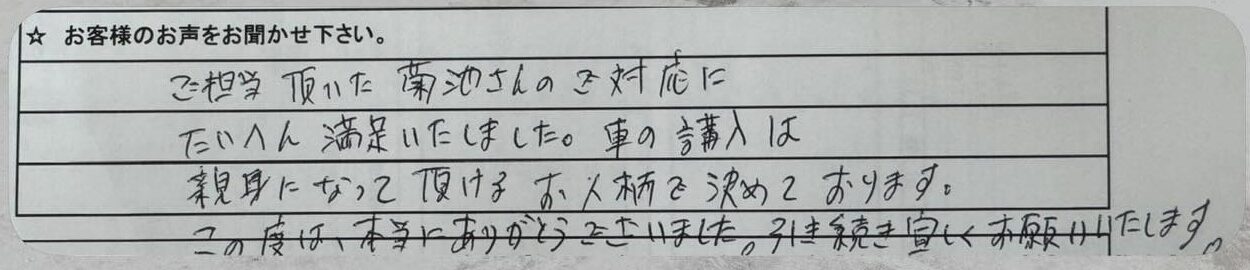 ☆ お客様のお声をお聞かせ下さい。
ご担当頂いた菊池さんのご対応に
たいへん満足いたしました。車の購入は
親身になって頂けるお人柄で決めております。
この度は、本当にありがとうございました。引き続き宜しくお願いいたします。